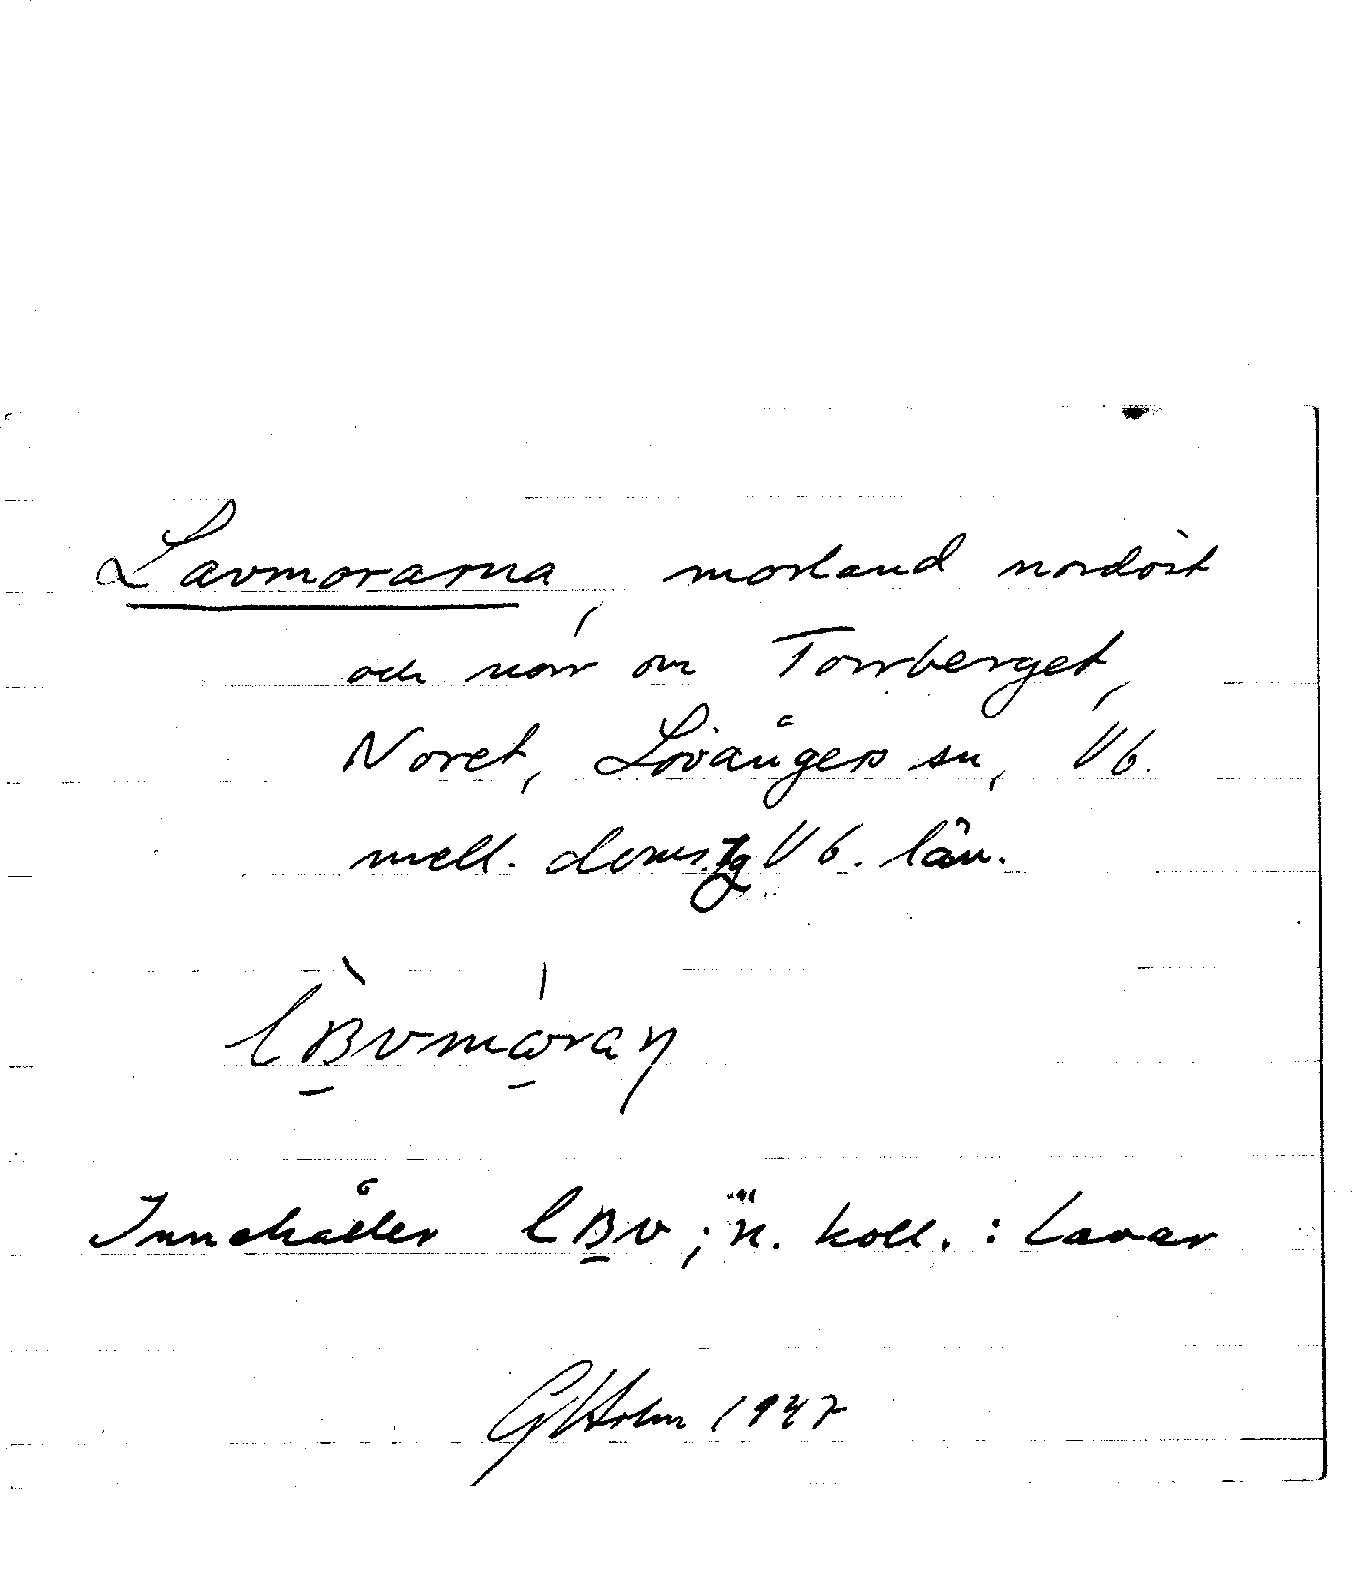 Lavmorarna, morland nordöst
och norr om Torrberget,
Noret, Lövångers sn, Vb.
mell. doms. Vb. län.
Innehåller lʙv ; n. koll. : lavar
G Holm 1947